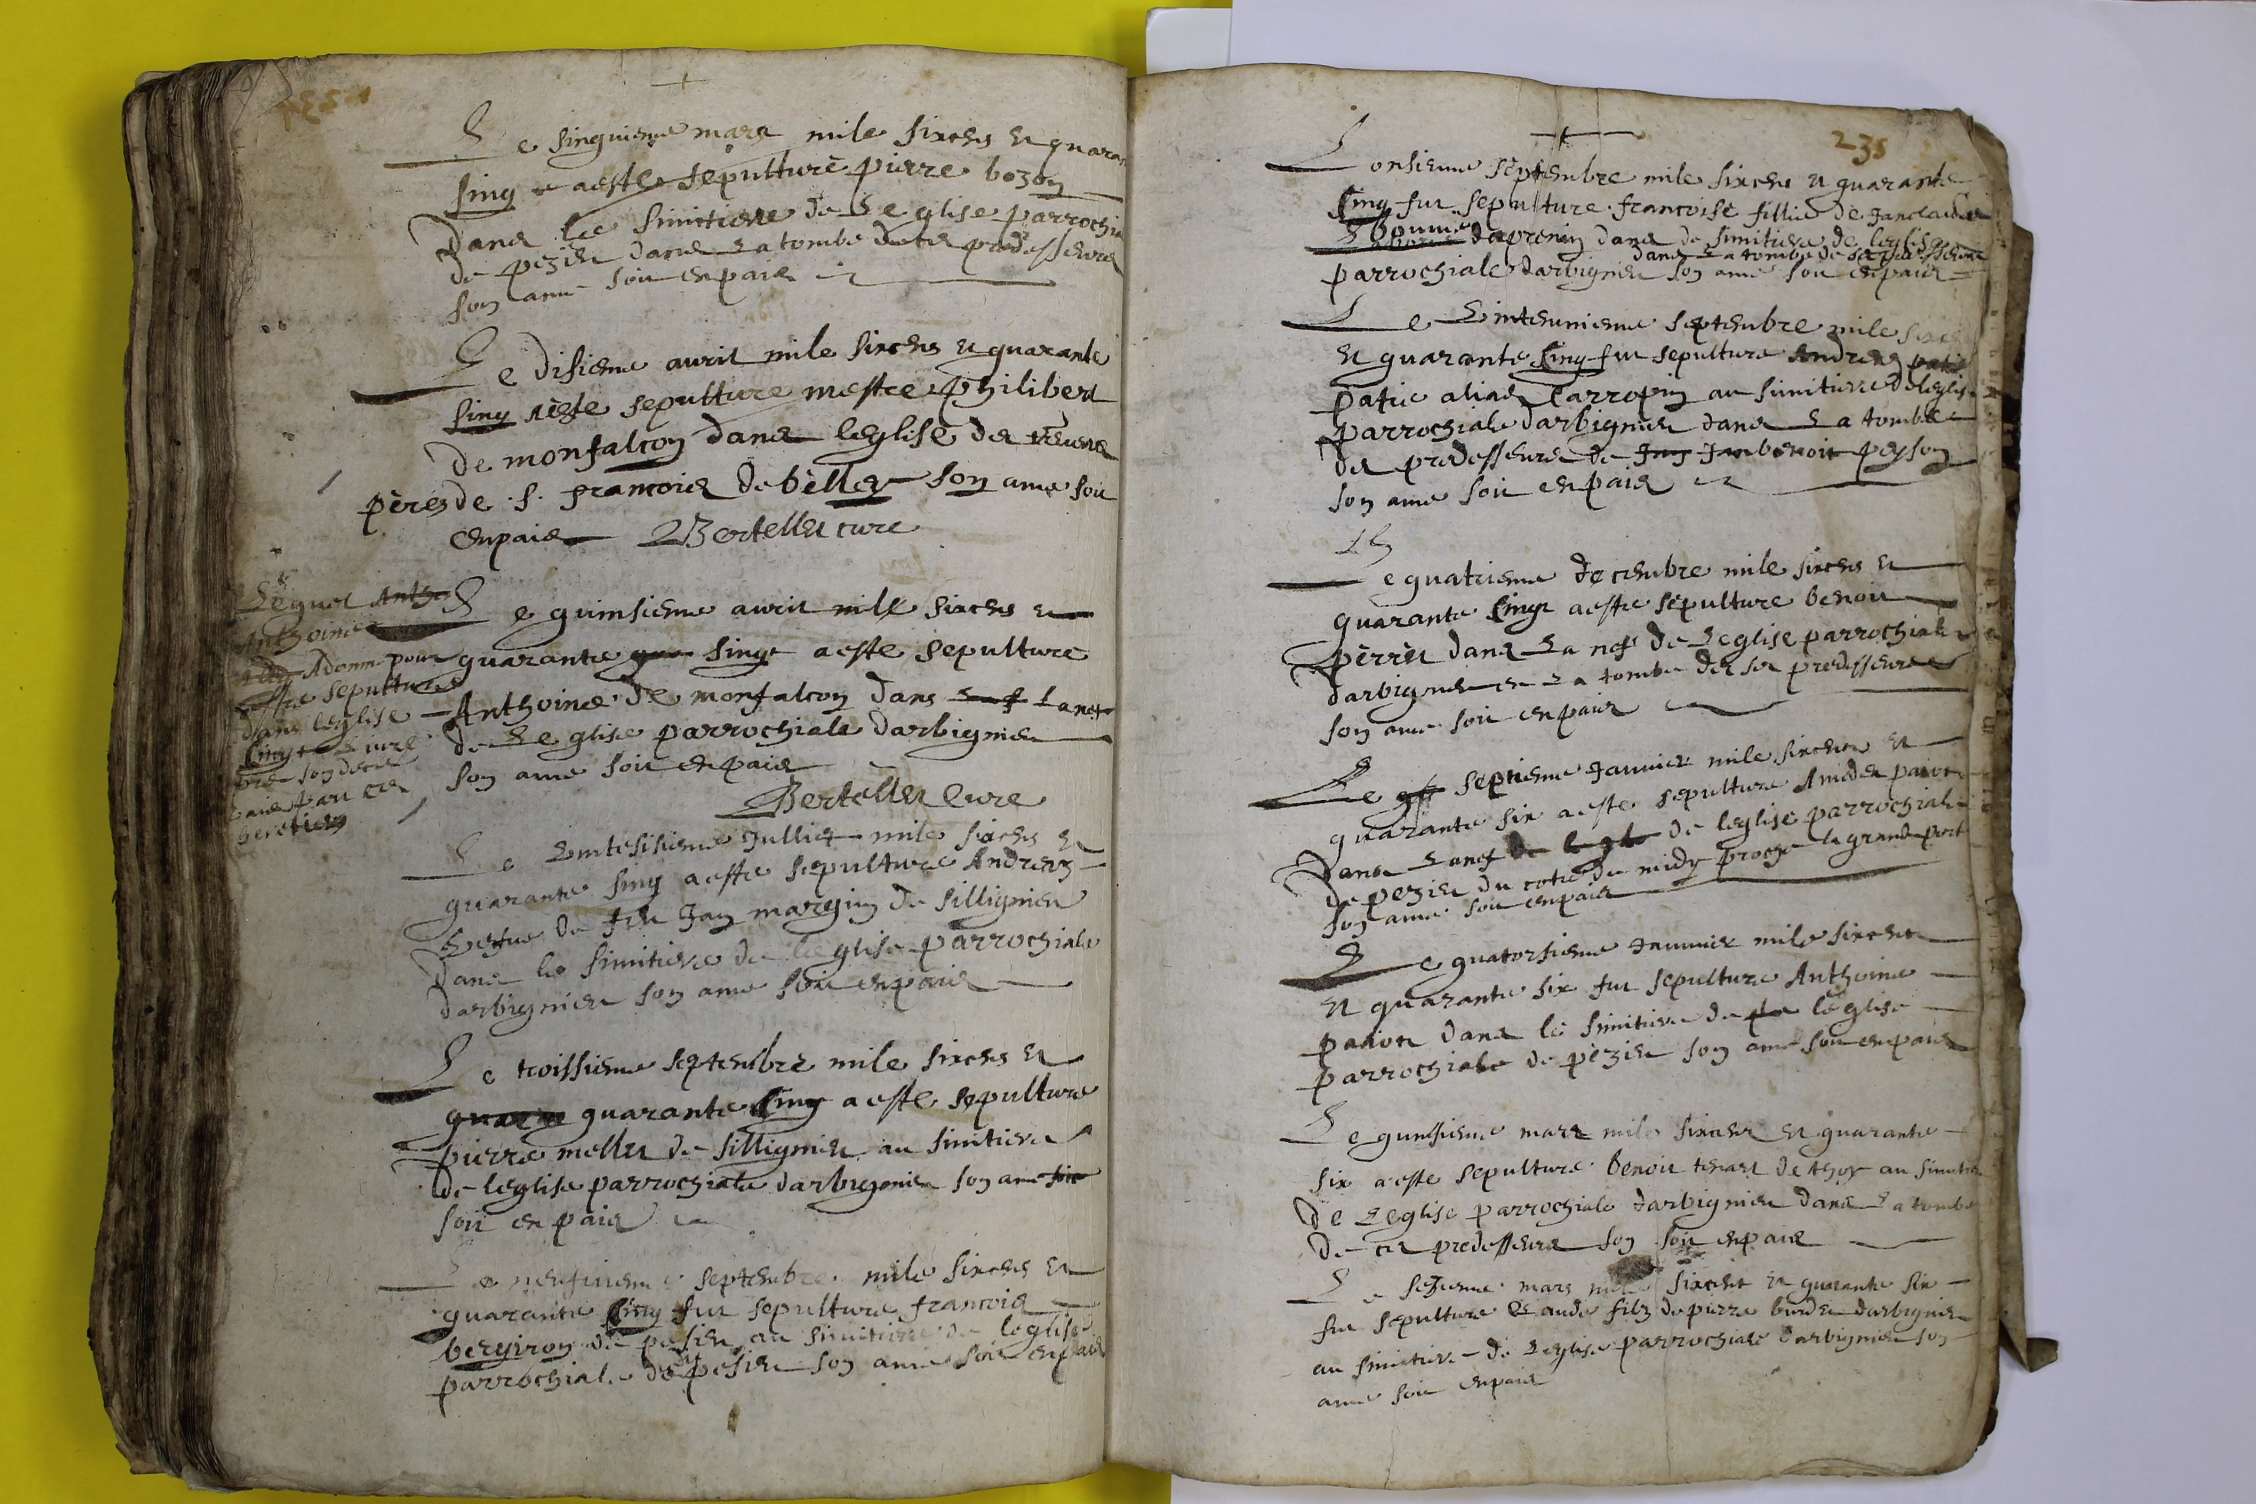 Le singuieme mars mile sixcens et quaran
sing aeste sepulture pierre bozon
dans le simitiere de Leglise parrochia
de pezieu dans La tombe de ces predesseurs
son ame soit en paix
Le disieme avril mile sixcens et quarante
sing aeste sepulture mestre philibert
de monfalcon dans leglise des reverens
pères de .s. francois de belley son ame soit
en paix Bertellet cure
Le quinsieme avril mille sixcens et
quarante sing aeste sepulture
Anthoine de monfalcon dans La nef
de Leglise parrochiale darbignieu
son ame soit en paix
Bertellet Cure
Lequel
Anthoine
A donne pour
estre sepulture
dans leglise
singt livre
heretiers
Le vintesisieme Julliet mile sixcens et
quarante sing aeste sepulture Andrea
Vefve de feu Jan margin de sillignieu
dans le simitiere de leglise parrochiale
darbignieu son ame soit en paix
Le troissieme septembre mile sixcens et
quarante sing aeste sepulture
pierre mellet de sillignieu au simitiere
de leglise parrochiale darbignieu son ame
soit en paix
Le neufvieme septembre mile sixcens et
quarante sing fut sepulture francois
bergiron de pesieu au simitiere de leglise
parrochiale de pesieu son ame soit en paix
235
Lonsieme septembre mile sixcens et quarante
sing fut sepulture francoise fillie de Janclaude
daprenin dans de simitiere de leglise
dans La tombe de
parrochiale darbignieu son ame soit en paix
Le Vinteunieme septembre mile sixcens
et quarante sing fut sepulture Andrea
patic alias Carropin au simitiere de leglise
parrochiale darbignieu dans La tombe
des predesseurs de Jan benoit peyson
son ame soit en paix
Le quatrieme decembre mile sixcens et
quarante singt aeste sepulture benoit
pèrret dans La nef de Leglise parrochiale
darbignieu en La tombe des ses predesseures
son ame soit en paix
Le septieme Janvier mile sixcens et
quarante six aeste sepulture Amedea
dans La nef de leglise parrochiale
de pezieu du cote de midy proche la grand port
son ame soit en paix
Le quatorsieme Janvier mile sixcens
et quarante six fut sepulture Anthoine
dans le simitiere de leglise
parrochiale de pèzieu son ame soit en paix
Le quinsieme mars mile sixcens et quarante
six aeste sepulture benoit tenart de thoy au simitier
de Leglise parrochiale darbignieu dans La tombe
de ces predesseurs son soit en paix
Le sezieme mars mile sixcent et quarante six
fut sepulture Claude filz de pierre burdet darbignieu
au simitiere de Leglise parrochiale darbignieu son
ame soit en paix